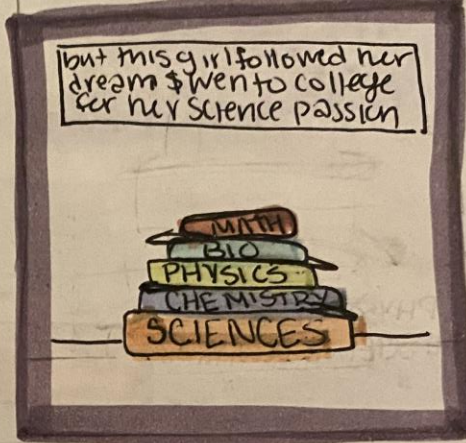 but this girl followed her
dream & wen to college
for her science passion
MATH
BIO
PHYSICS
CHEMISTRY
SCIENCES